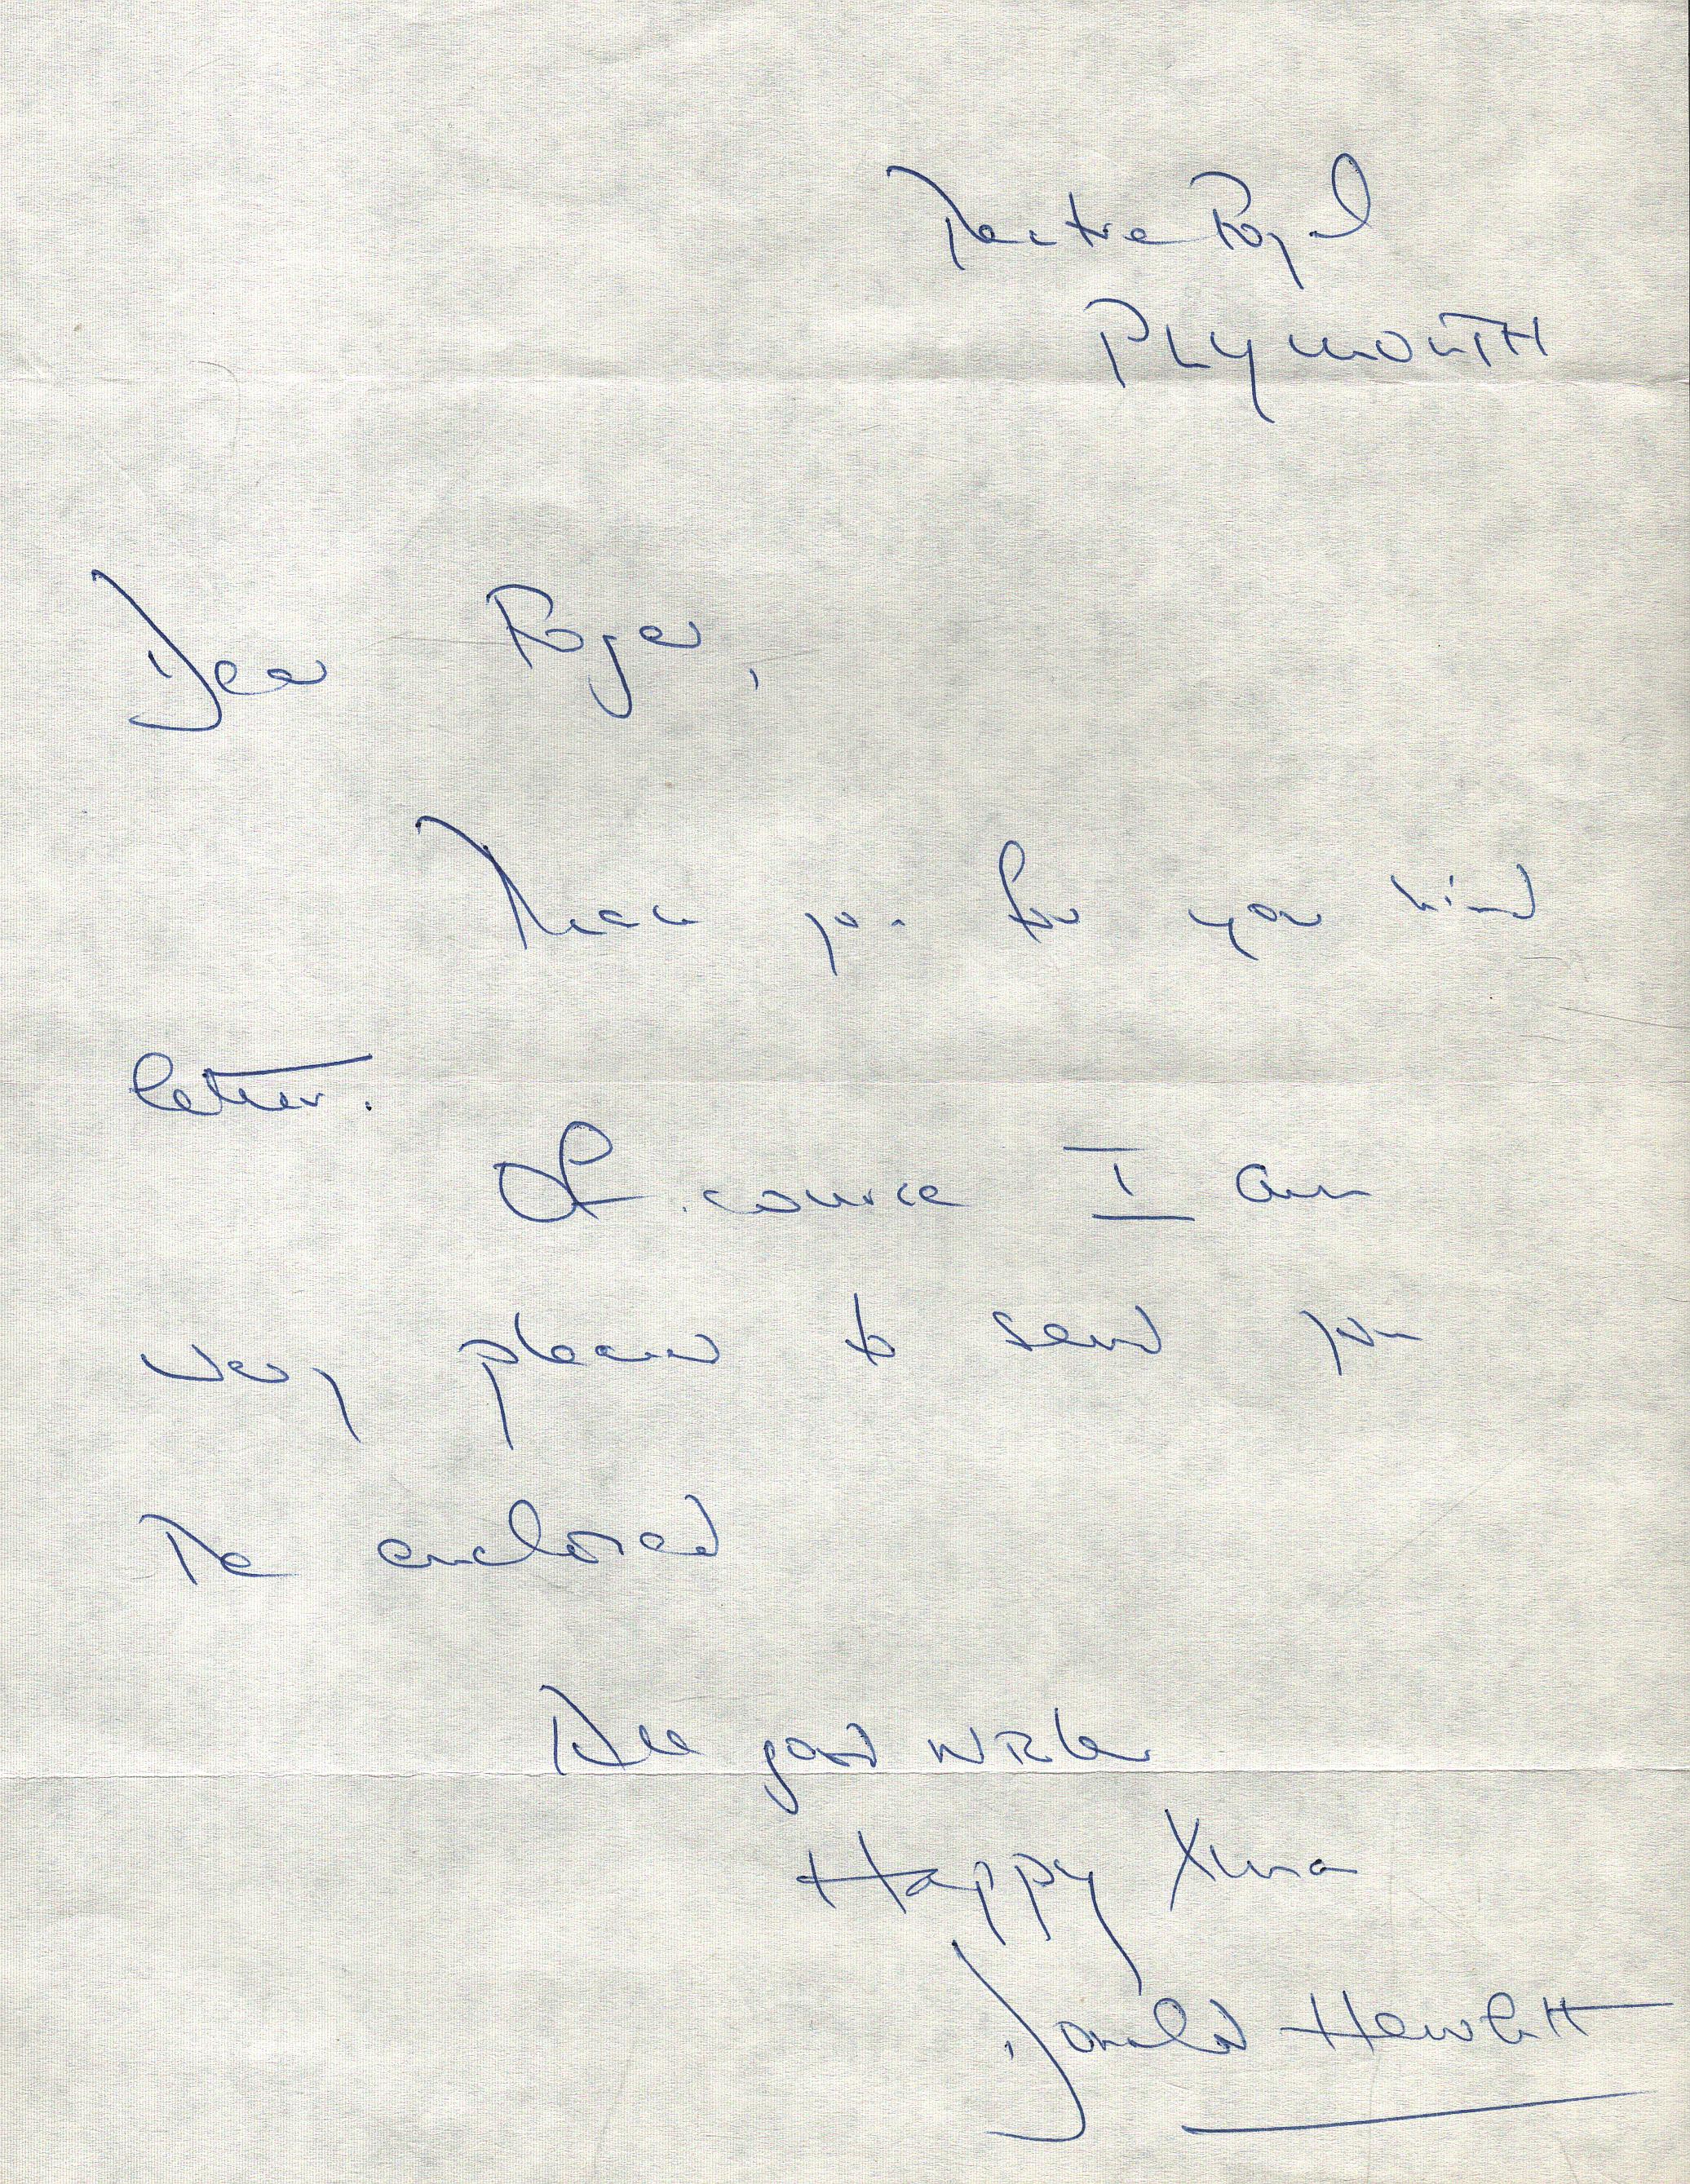 Theatre Royal
PLYMOUTH
Dear Roger,
Thank you for your kind
letter.
Of course I am
very pleased to send you
The enclosed
All good wishes
Happy Xmas
Donald Hewlett